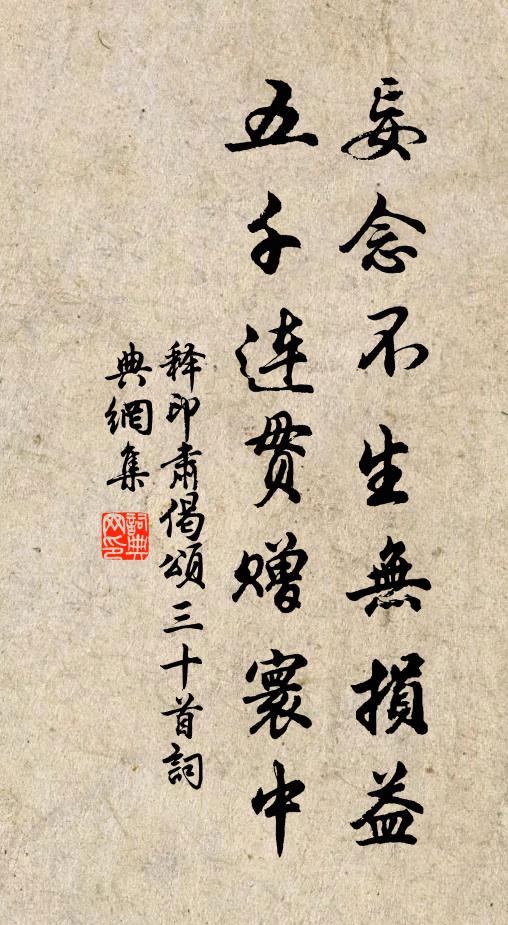 妄念不生無損益
五千連貫贈寰中
釋印肅偈頌三十首詞
典網集
詞典
网印